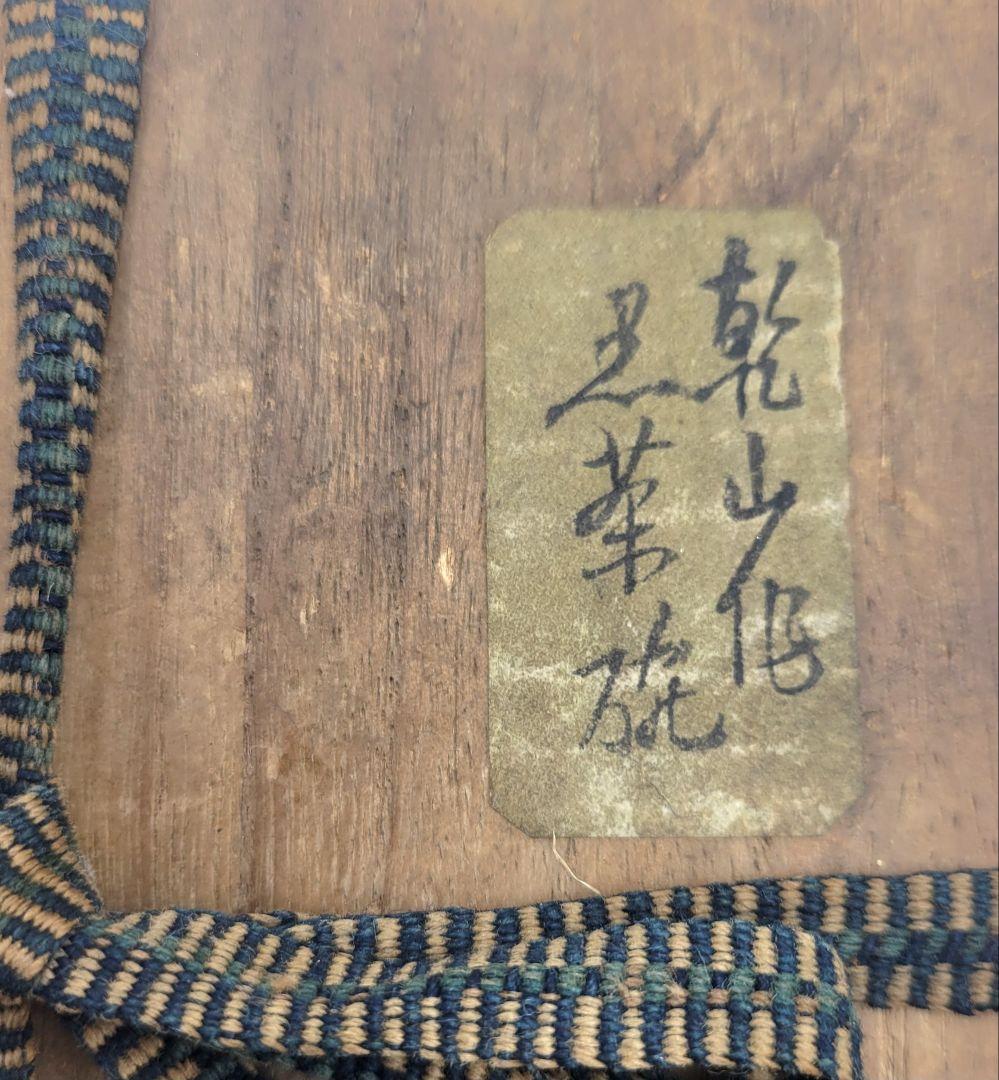 乾山作
黒茶碗